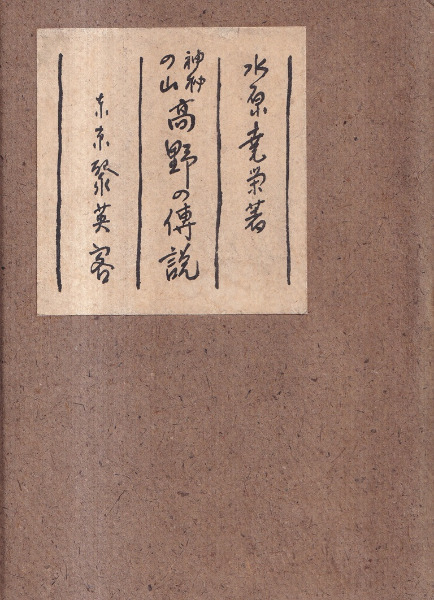 水原堯栄著
神秘
の山
高野の傳説
東京聚英閣